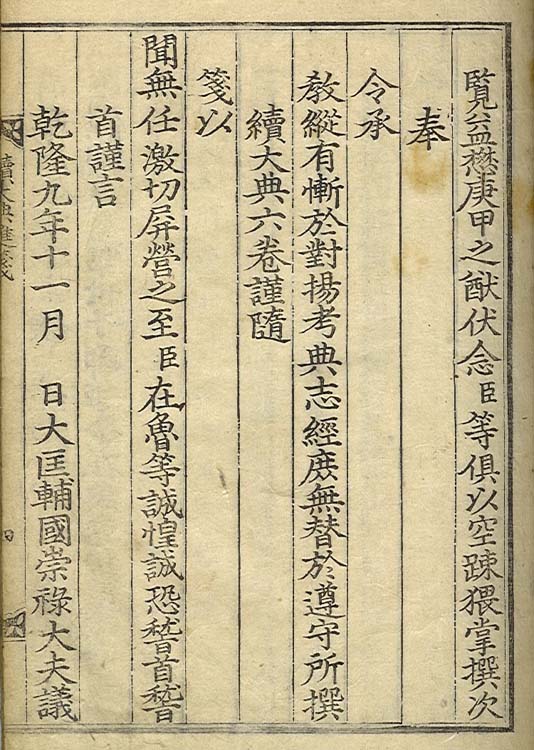 覽益懋庚甲之猷伏念臣等俱以空踈猥掌撰次
奉
令承
敎縱有慚於對揚考典志經庶無替於遵守所撰
續大典六卷謹隨
箋以
聞無任激切屛營之至臣在魯等誠惶誠恐稽首稽
首謹言
乾隆九年十一月 日大匡輔國崇祿大夫議
續大典進箋
四